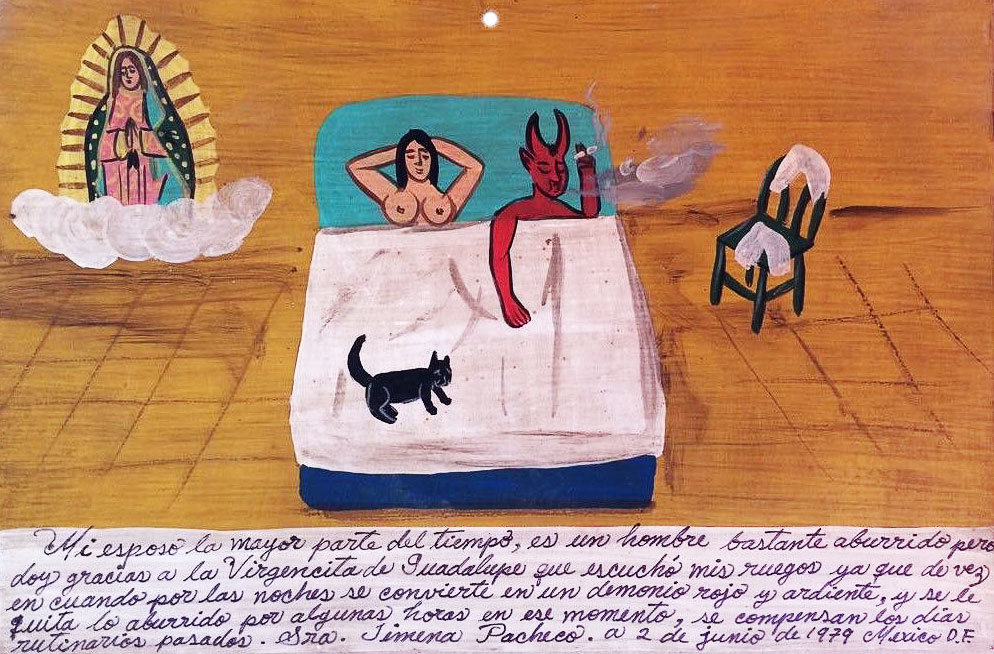 Mi esposo la mayor parte del tiempo, es un hombre bastante aburrido pero
doy gracias a la Virgencita de Guadalupe que escuchó mis ruegos ya que de vez
en cuando por las noches se convierte en un demonio rojo y ardiente, y se le
quita lo aburrido por algunas horas en ese momento, se compensan los días
rutinarios pasados. Sra. Jimena Pacheco. a 2 de junio de 1979 Mexico D.F.